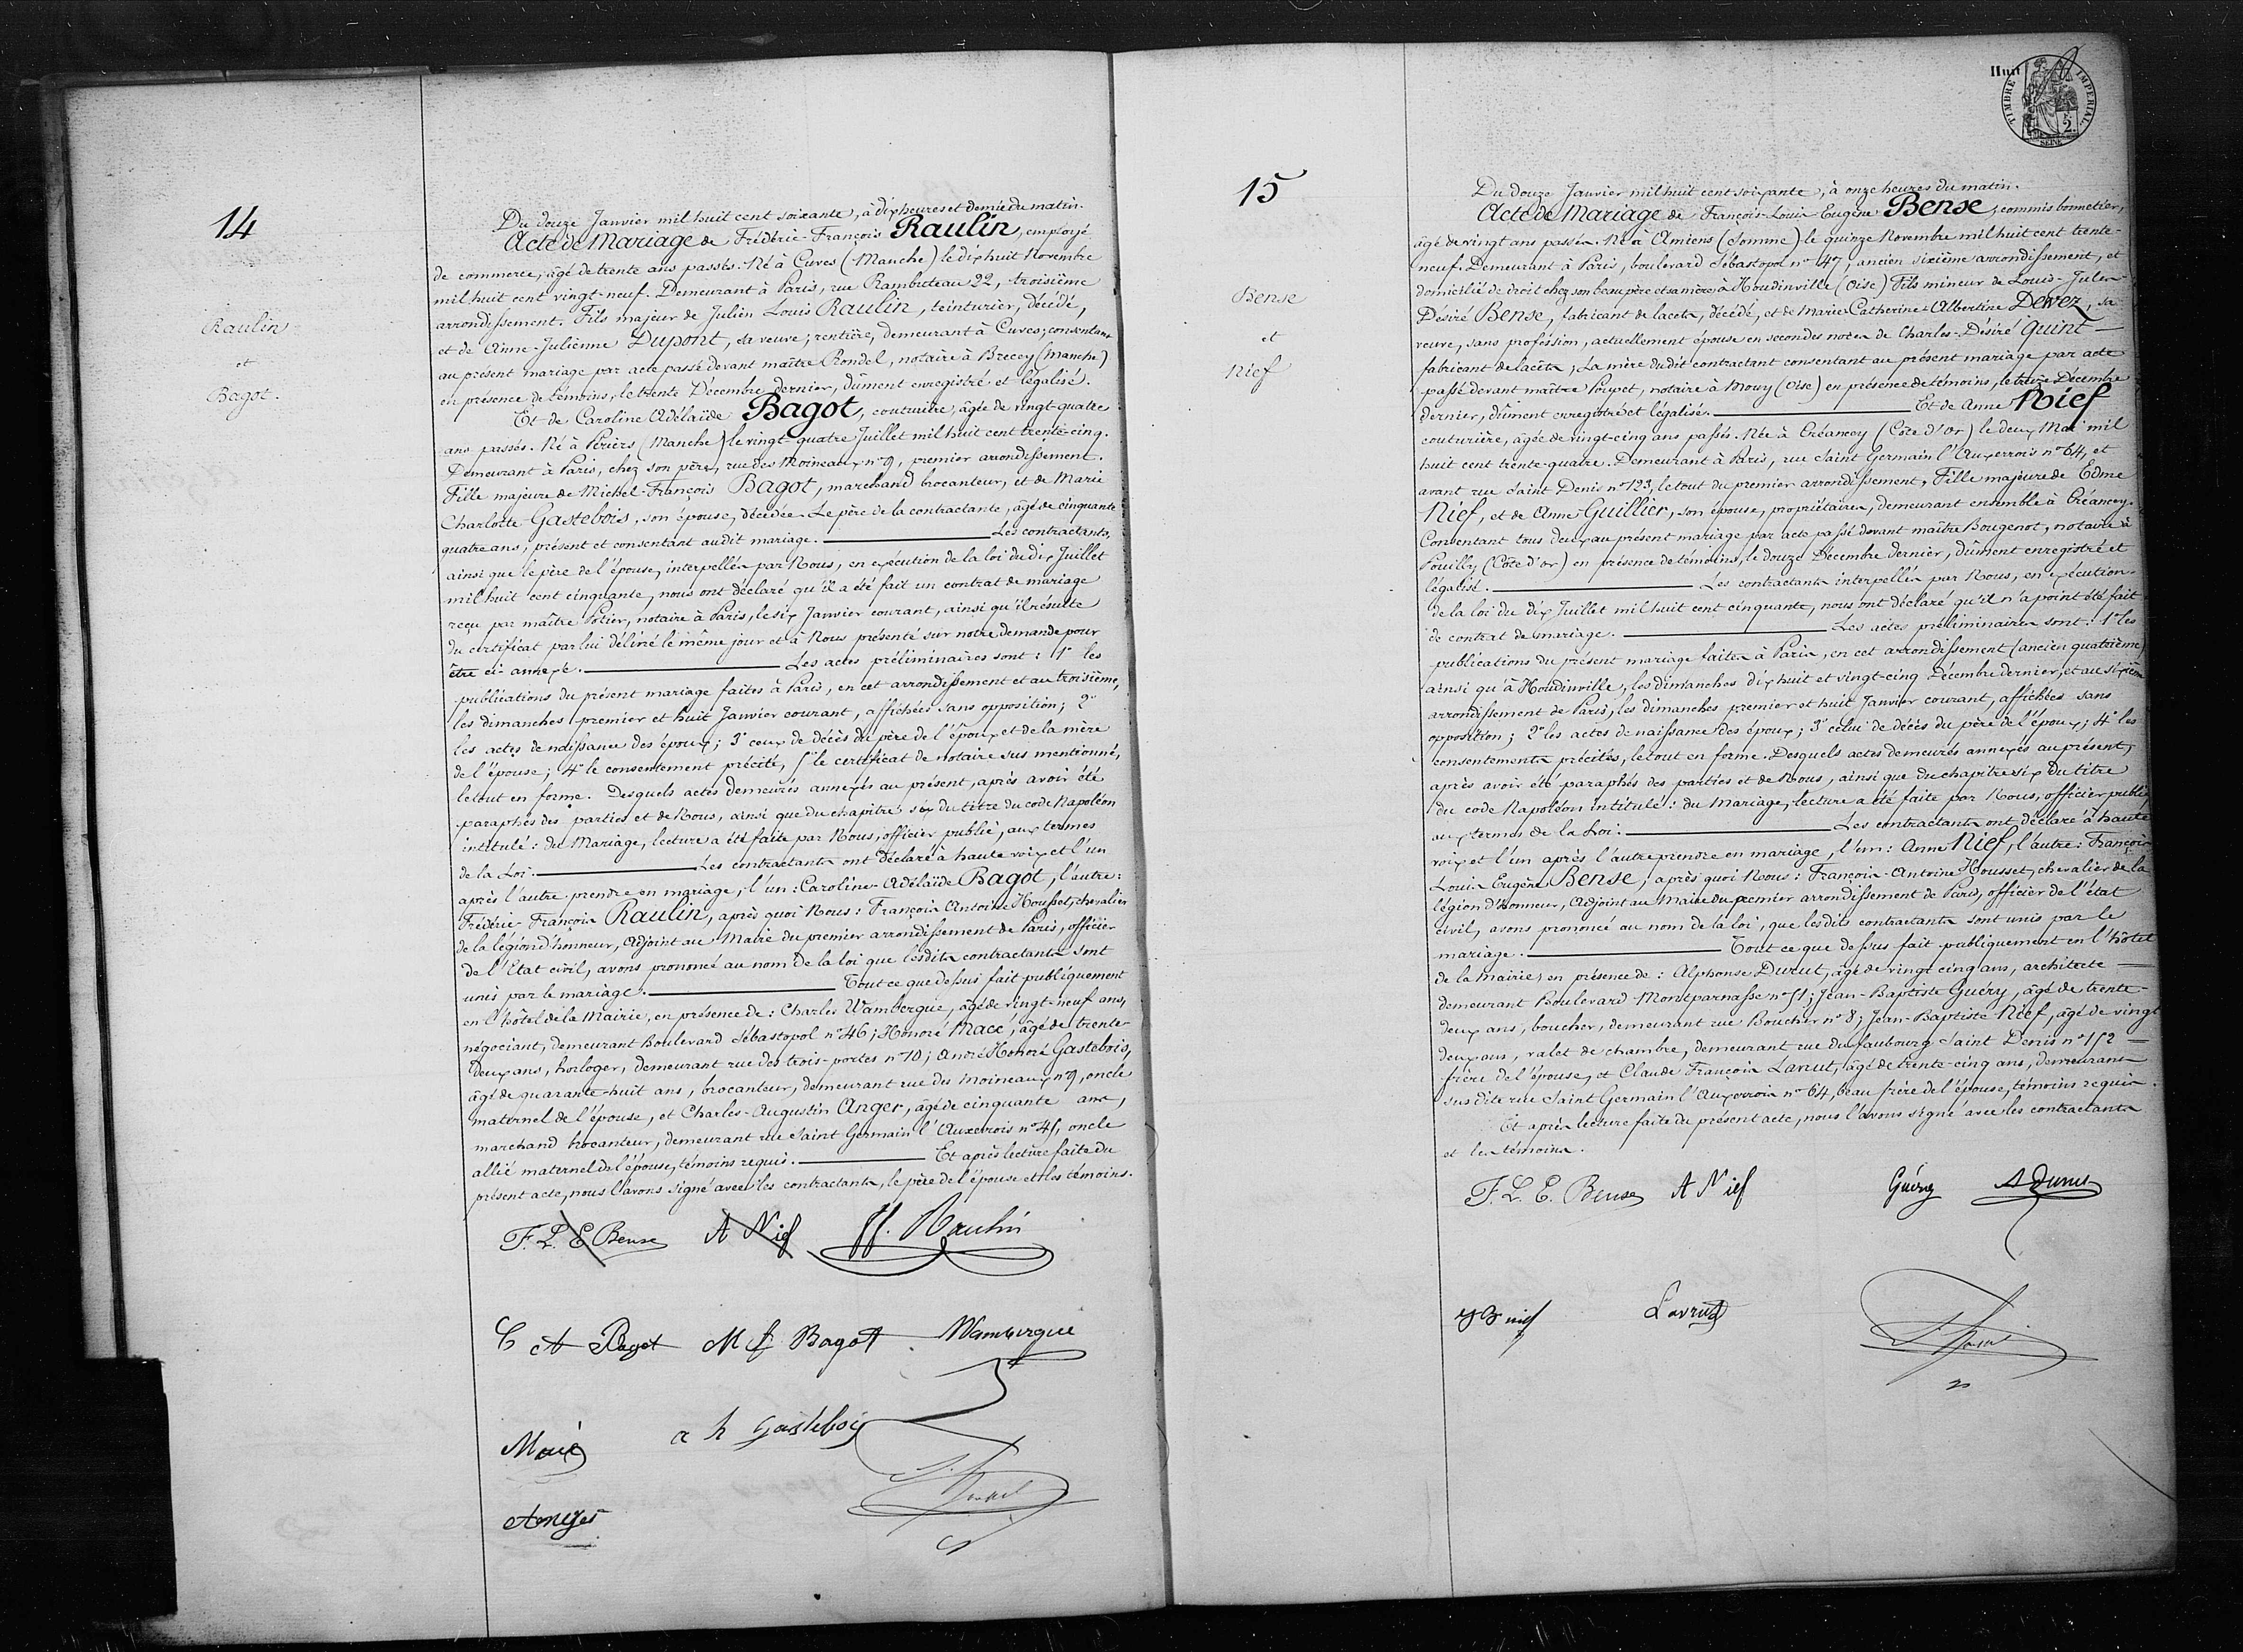 14
Raulin
et
Bagot.
Du douze Janvier mil huit cent soixante, à dix heures et demie du matin.
Acte de Mariage de Frédéric-François Raulin, employé
de commerce, âgé de trente ans passés. Né à Cuves (Manche) le dix huit Novembre
mil huit cent vingt-neuf. Demeurant à Paris, rue Rambuteau 22, troisième
arrondissement. Fils majeur de Julien Louis Raulin, teinturier, décédé,
et de Anne-Julienne Dupont, sa veuve, rentière, demeurant à Cuves; consentant
au présent mariage par acte passé devant maître Rondel, notaire à Brecey (Manche)
en présence de témoins, le trente Décembre dernier, dûment enregistré et légalisé.
Et de Caroline Adélaïde Bagot, couturière, âgée de vingt-quatre
ans passés. Né à Périers (Manche) le vingt-quatre Juillet mil huit cent trente-cinq.
Demeurant à Paris, chez son père, rue des Moineaux n° 9, premier arrondissement.
Fille majeure de Michel-François Bagot, marchand brocanteur, et de Marie
Charlotte Gastebois, son épouse, décédée. Le père de la contractante, âgé de cinquante
quatre ans, présent et consentant audit mariage. Les contractants,
ainsi que le père de l'épouse, interpellés par Nous, en exécution de la loi du dix Juillet
mil huit cent cinquante, nous ont déclaré qu'il a été fait un contrat de mariage
reçu par maître Potier, notaire à Paris, le six Janvier courant, ainsi qu'il résulte
du certificat par lui délivré le même jour et à Nous présenté sur notre demande pour
être ci-annexé. Les actes préliminaires sont: 1° les
publications du présent mariage faites à Paris, en cet arrondissement et au troisième,
les dimanches premier et huit Janvier courant, affichées sans opposition; 2°
les actes de naissance des époux; 3° ceux de décès du père de l'époux et de la mère
de l'épouse; 4° le consentement précité, 5° le certificat de notaire sus mentionné,
le tout en forme. Desquels actes demeurés annexés au présent, après avoir été
paraphés des parties et de Nous, ainsi que du chapitre six du titre du code Napoléon
intitulé: du Mariage, lecture a été faite par Nous, officier public, aux termes
de la Loi. Les contractants ont déclaré à haute voix et l'un
après l'autre prendre en mariage, l'un: Caroline-Adélaïde Bagot, l'autre:
Frédéric-François Raulin, après quoi Nous: François Antoine Housset, chevalier
de la légion d'honneur, Adjoint au Maire du premier arrondissement de Paris, officier
de l'Etat civil, avons prononcé au nom de la loi que lesdits contractants sont
unis par le mariage. Tout ce que dessus fait publiquement
en l'hôtel de la Mairie, en présence de: Charles Wambergue, âgé de vingt-neuf ans,
négociant, demeurant Boulevard Sébastopol n° 46; Honoré Macé, âgé de trente-
deux ans, horloger, demeurant rue des trois-portes n° 10; André Honoré Gastebois,
âgé de quarante-huit ans, brocanteur, demeurant rue des Moineaux n° 9, oncle
maternel de l'épouse, et Charles-Augustin Anger, âgé de cinquante ans,
marchand brocanteur, demeurant rue Saint Germain l'Auxerrois n° 45, oncle
allié maternel de l'épouse, témoins requis. Et après lecture faite du
présent acte, nous l'avons signé avec les contractants, le père de l'épouse et les témoins.
F. L. E Bense A Nief ff. Raulin
C A Bagot M f Bagot Wambergue
Macé a h Gastebois
Anger
Huit
TIMBRE IMPERIAL
2
SEINE
15
Bense
et
Nief
Du douze Janvier mil huit cent soixante, à onze heures du matin.
Acte de Mariage de François-Louis Eugène Bense, commis bonnetier,
âgé de vingt ans passés. Né à Amiens (Somme) le quinze Novembre mil huit cent trente-
neuf. Demeurant à Paris, boulevard Sébastopol n° 47, ancien sixième arrondissement, et
domicilié de droit chez son beau père et sa mère à Houdinville (Oise) Fils mineur de Louis-Jules-
Désiré Bense, fabricant de lacets, décédé, et de Marie-Catherine-Albertine Dewez, sa
veuve, sans profession, actuellement épouse en secondes noces de Charles-Désiré Quint
fabricant de lacets; La mère dudit contractant consentant au présent mariage par acte
passé devant maître Poupet, notaire à Mouy (Oise) en présence de témoins, le treize Décembre
dernier, dûment enregistré et légalisé. Et de Anne Nief
couturière, âgée de vingt-cinq ans passés. Née à Créancey (Côte d'Or) le deux Mai mil
huit cent trente-quatre. Demeurant à Paris, rue Saint Germain l'Auxerrois n° 64, et
avant rue Saint Denis n° 123, le tout du premier arrondissement. Fille majeure de Edme
Nief, et de Anne Guillier, son épouse, propriétaires, demeurant ensemble à Créancey.
Consentant tous deux au présent mariage par acte passé devant maître Bougenot, notaire à
Pouilly (Côte d'or) en présence de témoins, le douze Décembre dernier, dûment enregistré et
légalisé. Les contractants interpellés par Nous, en exécution
de la loi du dix Juillet mil huit cent cinquante, nous ont déclaré qu'il n'a point été fait
de contrat de mariage. Les actes préliminaires sont: 1° les
publications du présent mariage faites à Paris, en cet arrondissement (ancien quatrième)
ainsi qu'à Houdinville, les dimanches dix huit et vingt-cinq Décembre dernier, et au sixième
arrondissement de Paris, les dimanches premier et huit Janvier courant, affichées sans
opposition; 2° les actes de naissance des époux; 3° celui de décès du père de l'époux; 4° les
consentements précités, le tout en forme. Desquels actes demeurés annexés au présent,
après avoir été paraphés des parties et de Nous, ainsi que du chapitre six du titre
du code Napoléon intitulé: du Mariage, lecture a été faite par Nous, officier public,
aux termes de la Loi. Les contractants ont déclaré à haute
voix et l'un après l'autre prendre en mariage, l'un: Anne Nief, l'autre: François
Louis Eugène Bense, après quoi Nous: François-Antoine Housset, chevalier de la
légion d'honneur, Adjoint au Maire du premier arrondissement de Paris, officier de l'état
civil, avons prononcé au nom de la loi, que lesdits contractants sont unis par le
mariage. Tout ce que dessus fait publiquement en l'hôtel
de la Mairie, en présence de: Alphonse Durut, âgé de vingt cinq ans, architecte
demeurant Boulevard Montparnasse n° 51; Jean-Baptiste Guéry, âgé de trente-
deux ans, boucher, demeurant rue Boucher n° 8; Jean-Baptiste Nief, âgé de vingt
deux ans, valet de chambre, demeurant rue du faubourg Saint Denis n° 152
frère de l'épouse, et Claude François Lanut, âgé de trente-cinq ans, demeurant
susdite rue Saint Germain l'Auxerrois n° 64, beau frère de l'épouse, témoins requis.
Et après lecture faite du présent acte, nous l'avons signé avec les contractants
et les témoins.
F. L. E. Bense A Nief Guéry